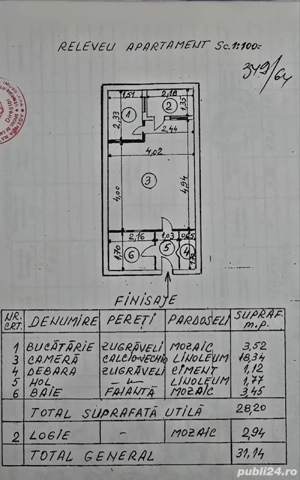 RELEVEU APARTAMENT Sc.1:100
349/64
1,51 2,18
1 2 1,35
2,33 2,44
4,02
4,00 3 4,94
2,16 1,03
1,70 6 5 4
FINISAJE
NR. CRT. DENUMIRE PEREȚI PARDOSELI SUPRAF m.p.
1 BUCĂTĂRIE ZUGRĂVELI MOZAIC 3,52
3 CAMERĂ CALCIOVECHIO LINOLEUM 18,34
4 DEBARA ZUGRĂVELI CIMENT 1,12
5 HOL -"- LINOLEUM 1,77
6 BAIE FAIANȚĂ MOZAIC 3,45
TOTAL SUPRAFAȚĂ UTILĂ 28,20
2 LOGIE - MOZAIC 2,94
TOTAL GENERAL 31,14
publi24.ro